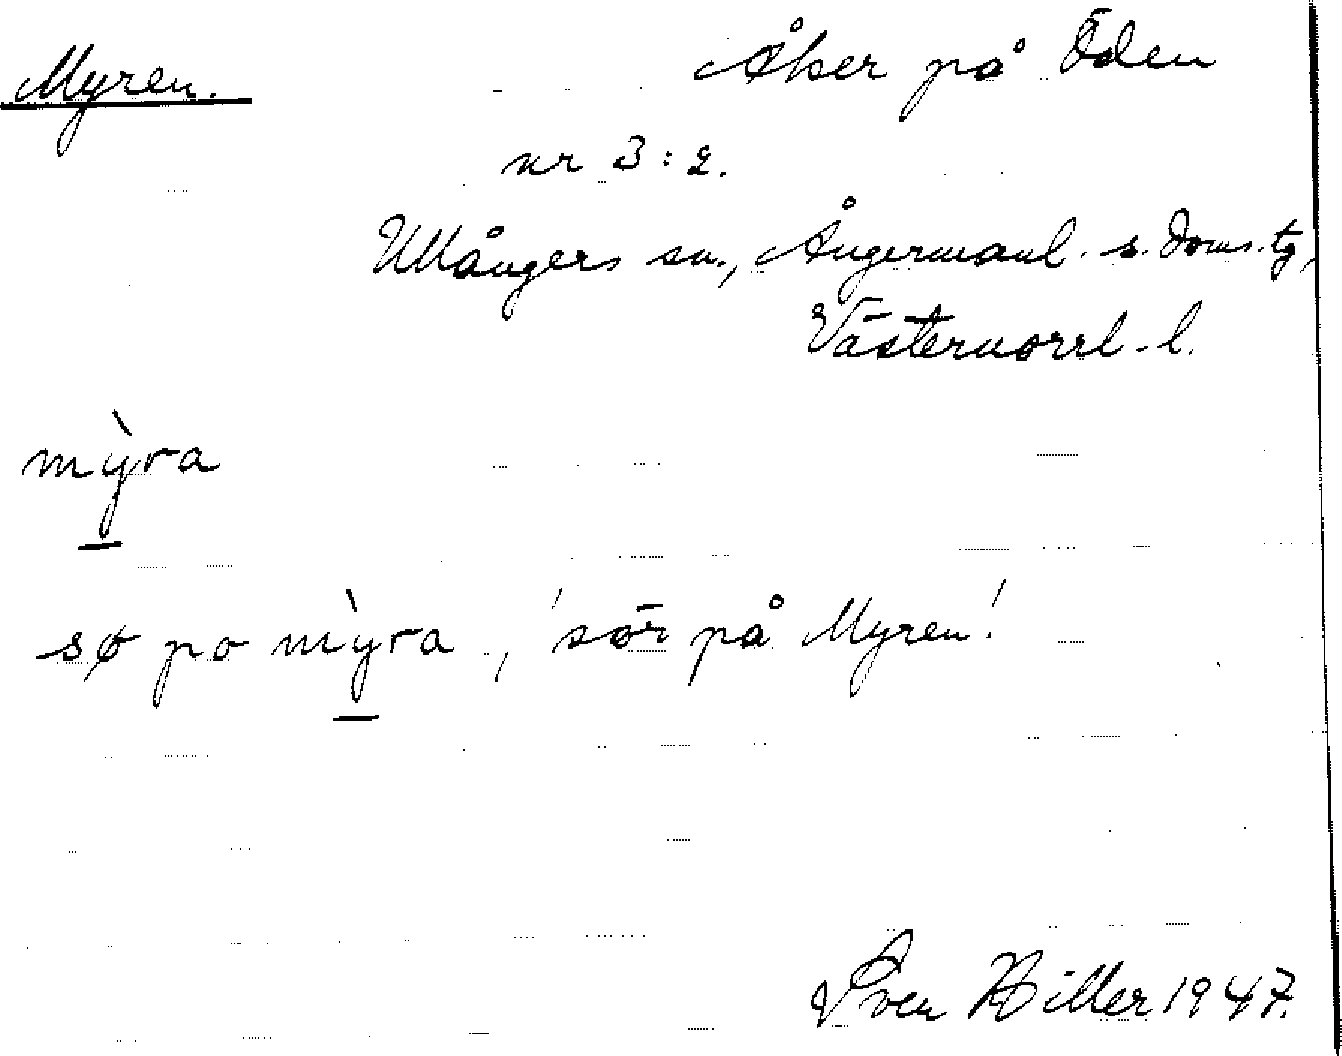 Myren. Åker på Öden
nr 3:2.
Ullångers sn., Ångermanl. s. doms. tg,
Västernorrl. l.
mỳra
sø po mỳra, 'sör på Myren'
Sven Hiller 1947.